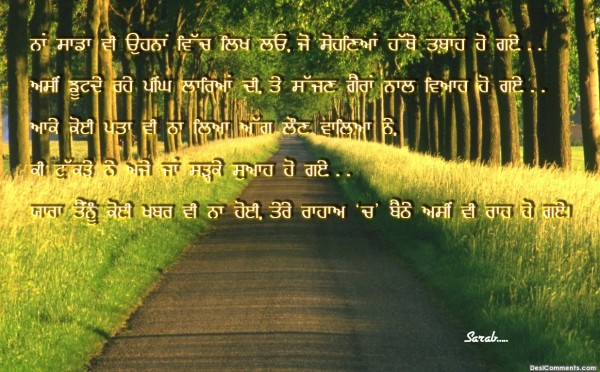 ਨਾਂ ਸਾਡਾ ਵੀ ਉਹਨਾਂ ਵਿੱਚ ਲਿਖ ਲਓ, ਜੋ ਸੋਹਣਿਆਂ ਹੱਥੋ ਤਬਾਹ ਹੋ ਗਏ . .
ਅਸੀਂ ਝੂਟਦੇ ਰਹੇ ਪੀਂਘ ਲਾਰਿਆਂ ਦੀ, ਤੇ ਸੱਜਣ ਗੈਰਾਂ ਨਾਲ ਵਿਆਹ ਹੋ ਗਏ . .
ਆਕੇ ਕੋਈ ਪਤਾ ਵੀ ਨਾ ਲਿਆ ਅੱਗ ਲੌਣ ਵਾਲਿਆ ਨੇ,
ਕੀ ਟੁੱਕੜੇ ਨੇ ਅਜੇ ਜਾਂ ਸੜ੍ਹਕੇ ਸੁਆਹ ਹੋ ਗਏ . .
ਯਾਰਾ ਤੈਂਨੂੰ ਕੋਈ ਖਬਰ ਵੀ ਨਾ ਹੋਈ, ਤੇਰੇ ਰਾਹਾਅ 'ਚ' ਬੈਠੇ ਅਸੀਂ ਵੀ ਰਾਹ ਹੋ ਗਏ।
Sarab.....
DesiComments.com